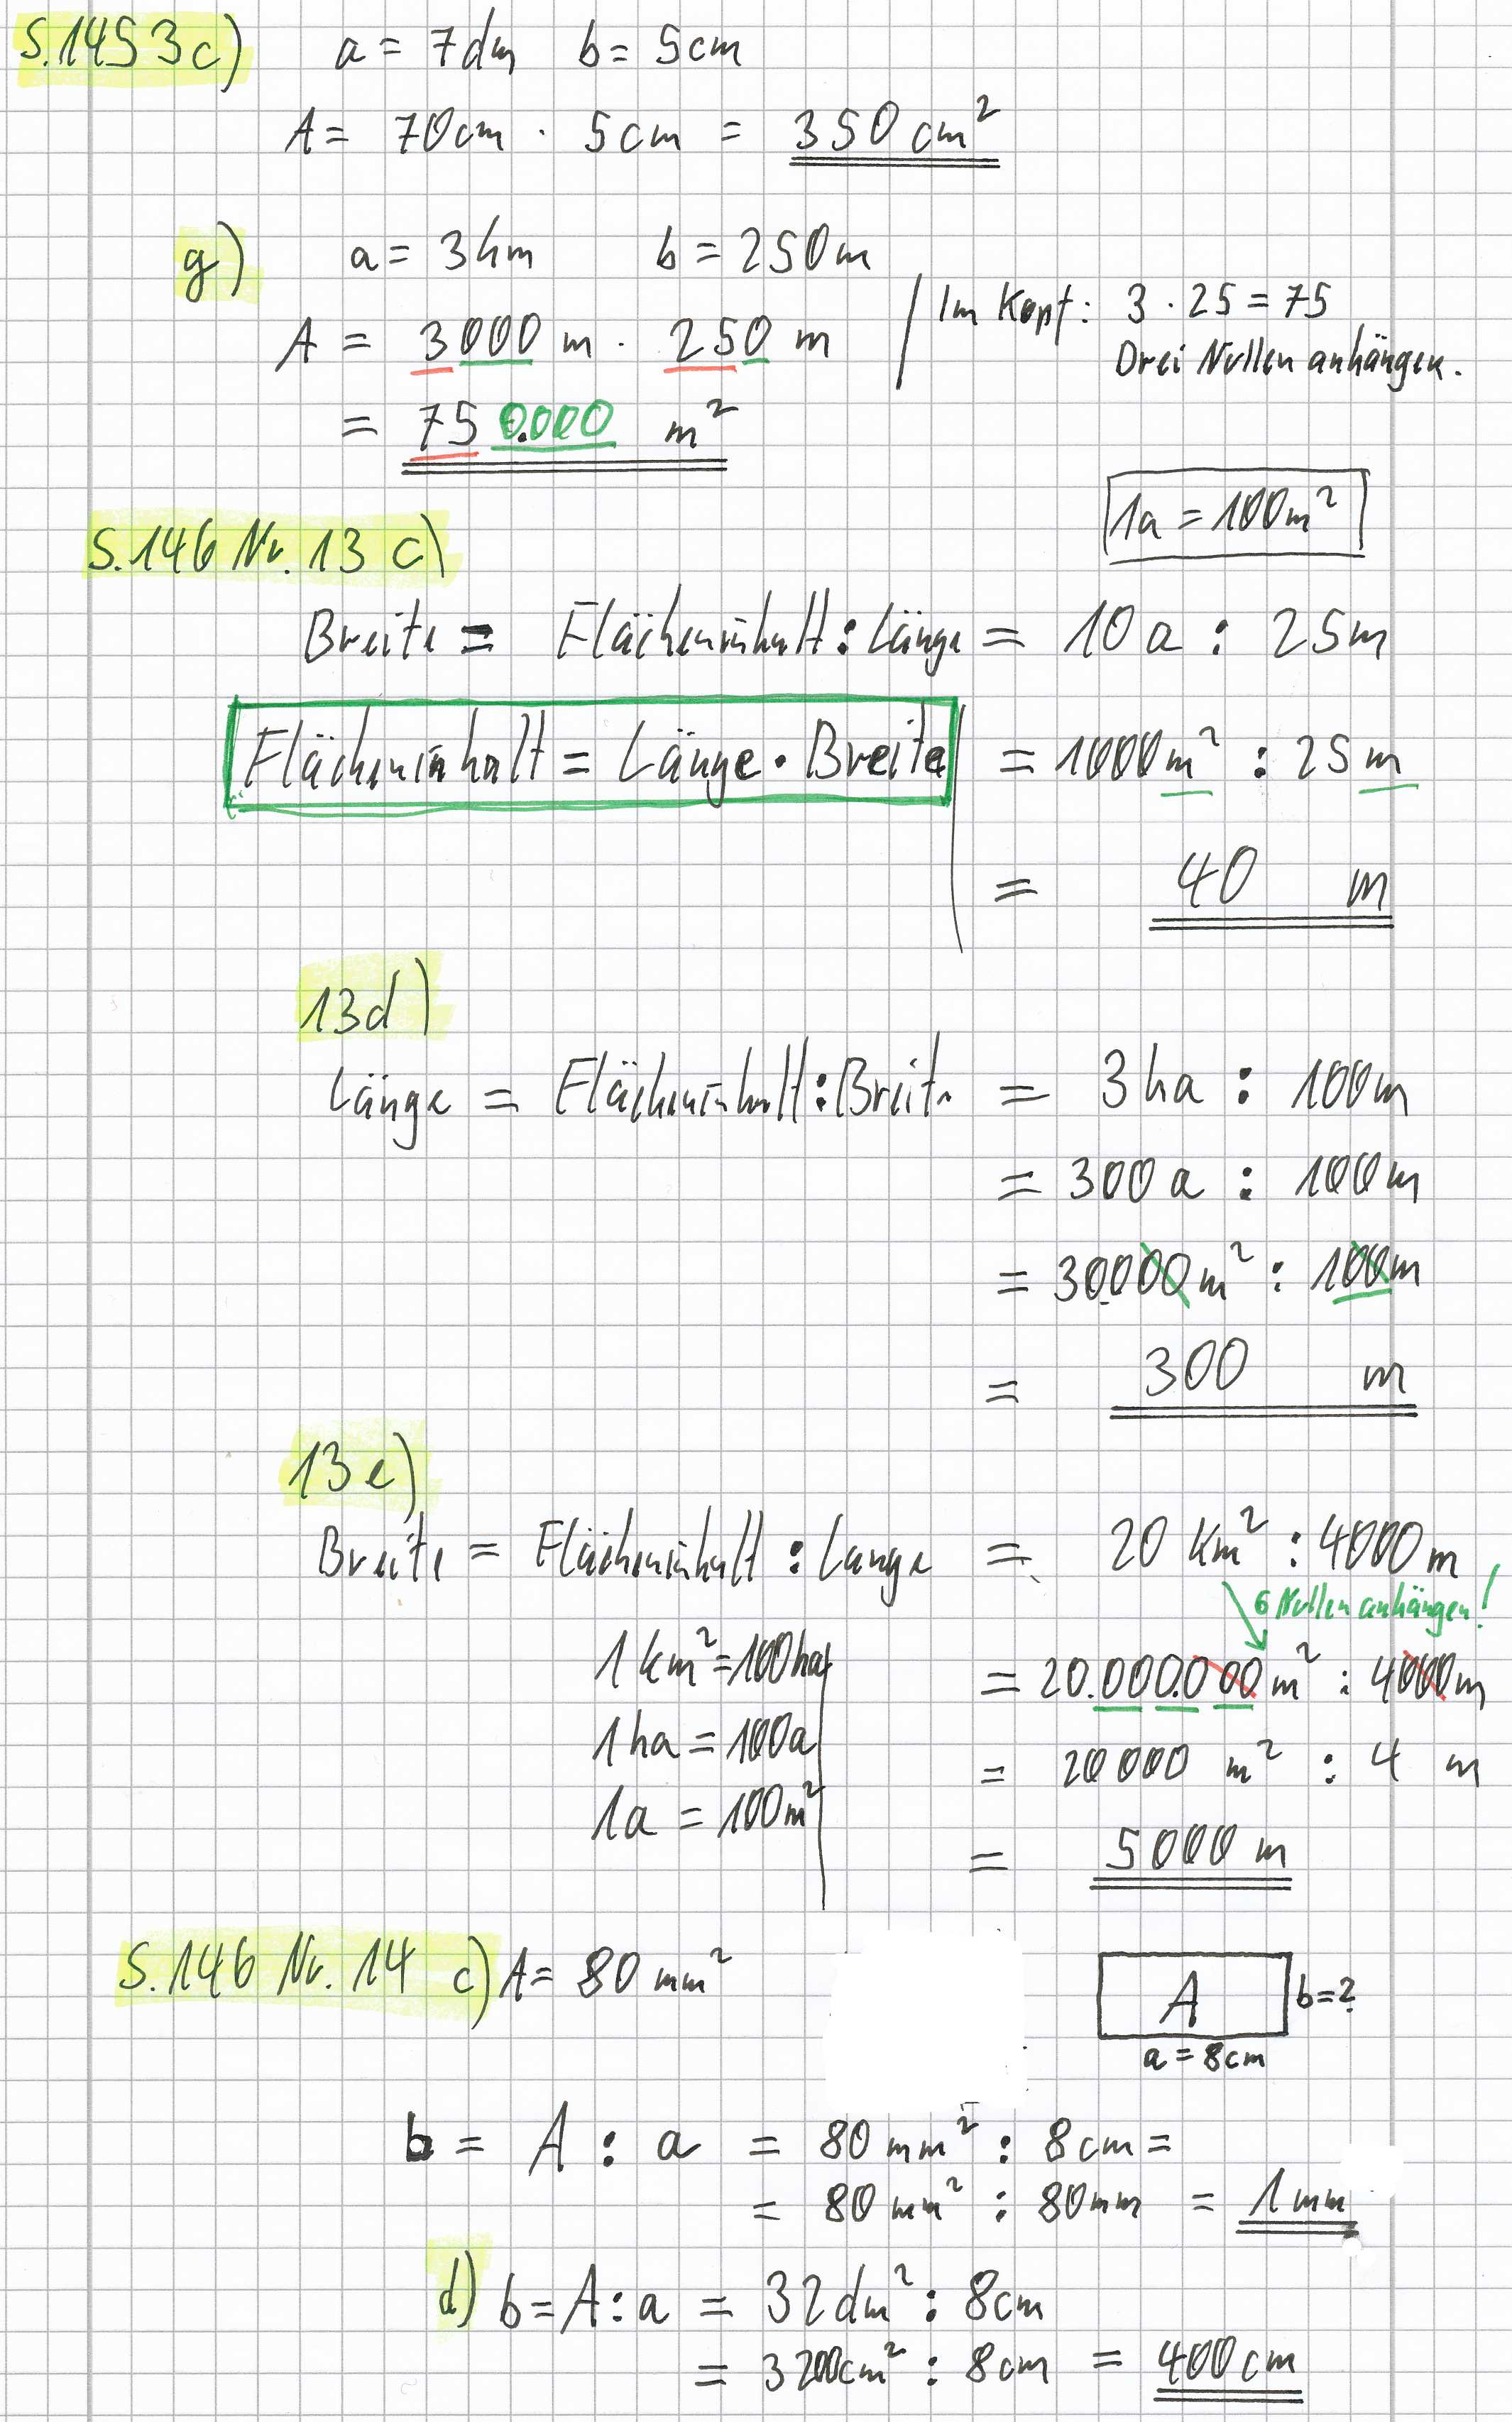 S.145 3c) a = 7dm b = 5cm
A = 70cm · 5cm = 350 cm²
g) a = 3km b = 250m
A = 3000 m · 250 m
Im Kopf: 3 · 25 = 75
Drei Nullen anhängen.
= 750.000 m²
1a = 100m²
S.146 Nr. 13 c)
Breite = Flächeninhalt : Länge = 10a : 25m
Flächeninhalt = Länge · Breite
= 1000m² : 25m
= 40 m
13d)
Länge = Flächeninhalt : Breite = 3ha : 100m
= 300a : 100m
= 30.000m² : 100m
= 300 m
13e)
Breite = Flächeninhalt : Länge = 20 km² : 4000m
6 Nullen anhängen!
1km² = 100ha
= 20.000.000m² : 4000m
1ha = 100a
= 20000 m² : 4 m
1a = 100m²
= 5000 m
S.146 Nr. 14 c) A = 80 mm²
A b=?
a = 8cm
b = A : a = 80 mm² : 8cm =
= 80 mm² : 80mm = 1mm
d) b = A : a = 32dm² : 8cm
= 3200cm² : 8cm = 400cm